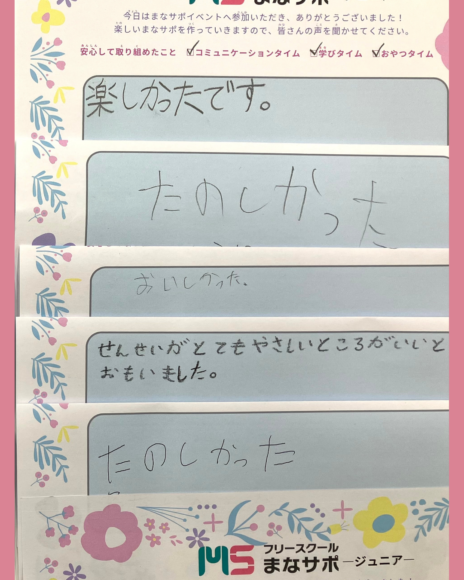 まなサポ
今日はまなサポイベントへ参加いただき、ありがとうございました！
楽しいまなサポを作っていきますので、皆さんの声を聞かせてください。
安心して取り組めたこと ✓コミュニケーションタイム ✓学びタイム ✓おやつタイム
楽しかったです。
たのしかった
おいしかった。
せんせいがとてもやさしいところがいいと
おもいました。
たのしかった
MS フリースクール
まなサポ―ジュニア―